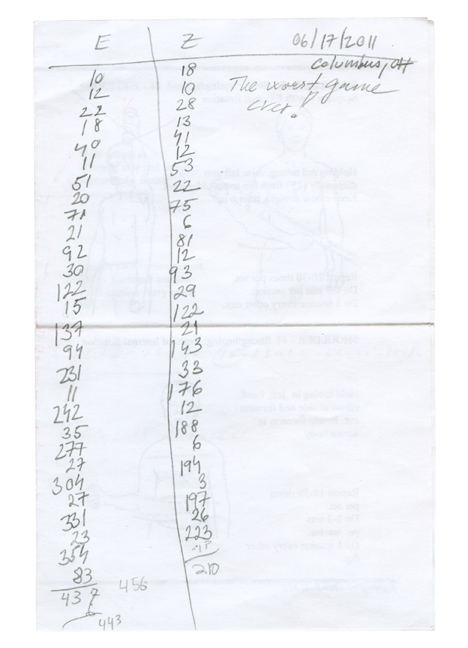 E Z 06/17/2011
Columbus, OH
The worst game
ever!
10 18
12 10
22 28
18 13
40 41
11 12
51 53
20 22
71 75
21 6
92 81
30 12
122 93
15 29
137 122
94 21
231 143
11 33
242 176
35 12
277 188
27 6
304 194
27 3
331 197
23 26
354 223
83
437 456 210
6
443